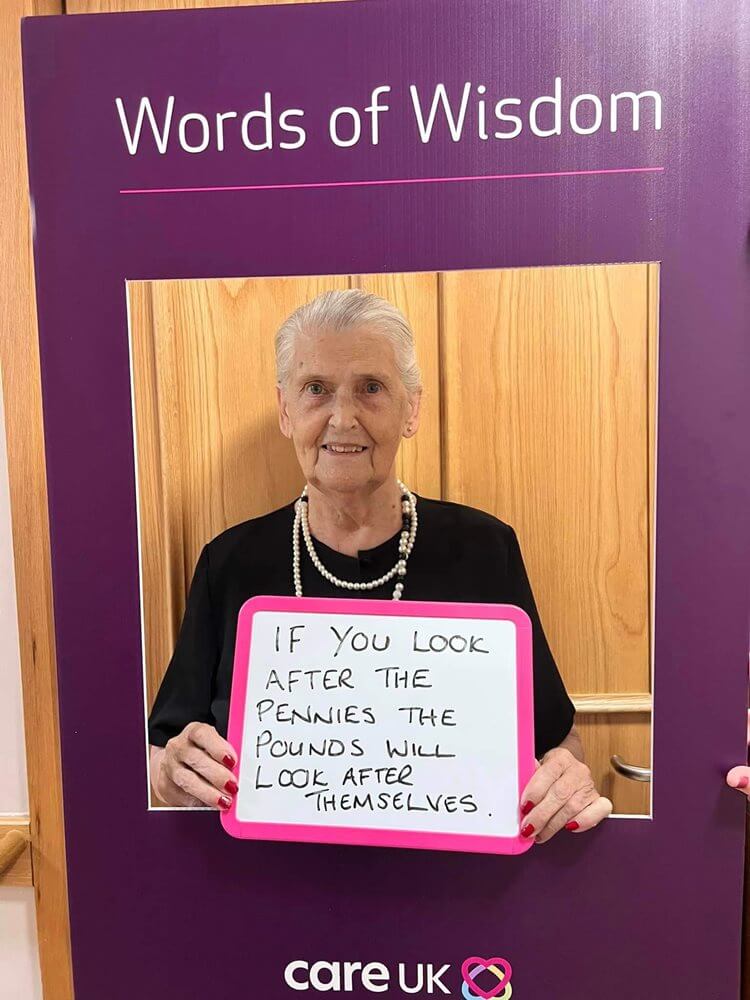 Words of Wisdom
IF YOU LOOK
AFTER THE
PENNIES THE
POUNDS WILL
LOOK AFTER
THEMSELVES.
care UK